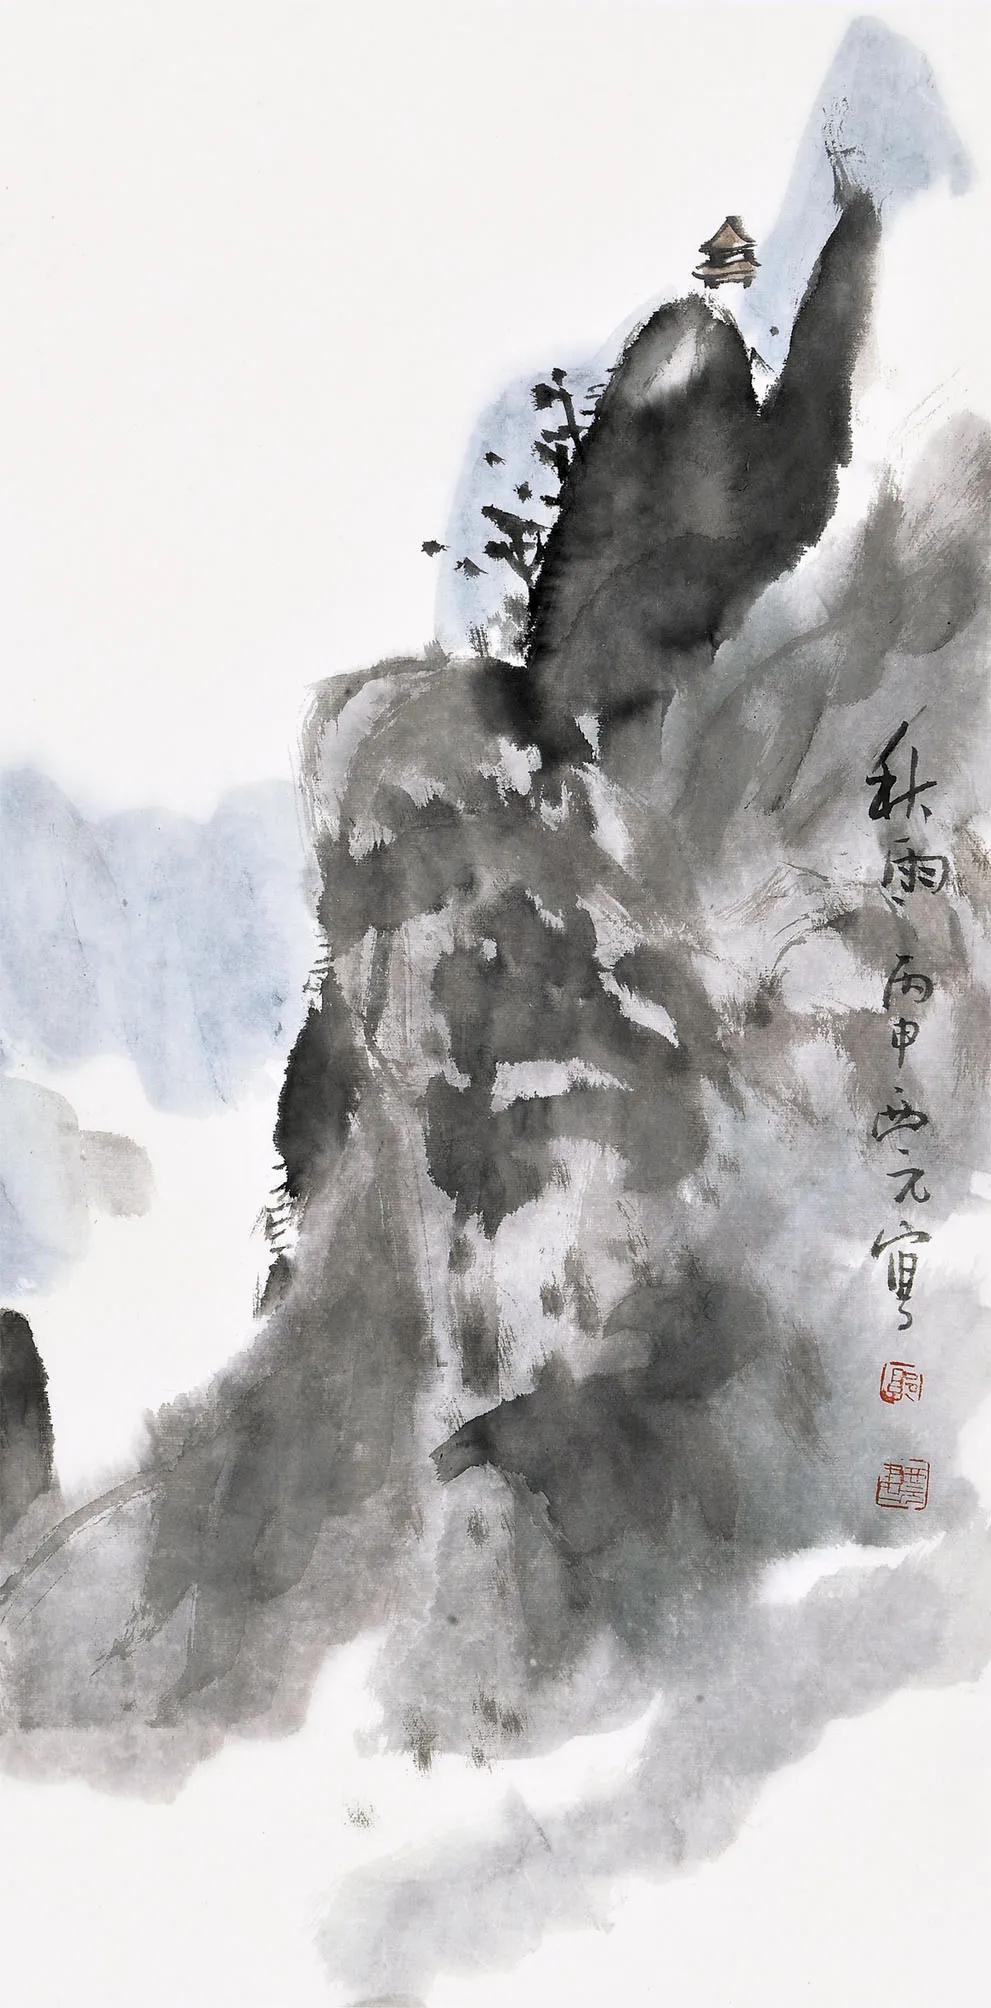 秋雨 丙申西元寫